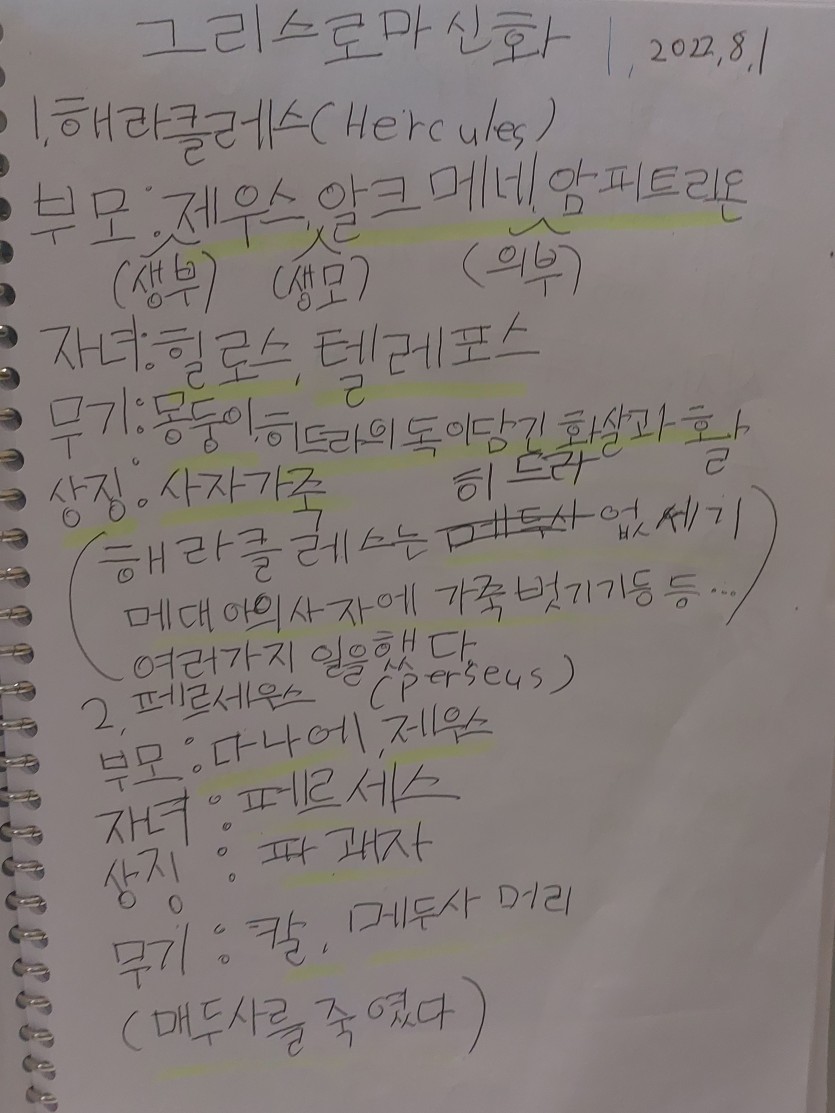 그리스로마신화 1, 2022.8.1
1. 해라클레스(Hercules)
부모: 제우스, 알크메네, 암피트리온
(생부) (생모) (의부)
자녀: 힐로스, 텔레포스
무기: 몽둥이, 히드라의독이담긴화살과활
상징: 사자가죽 히드라
(해라클레스는 메두사 없세기
메대아의사자에 가죽벗기기등등...)
여러가지 일을했다.
2. 페르세우스 (perseus)
부모: 다나에, 제우스
자녀: 페르세스
상징: 파괘자
무기: 칼, 메두사 머리
(매두사를 죽였다)